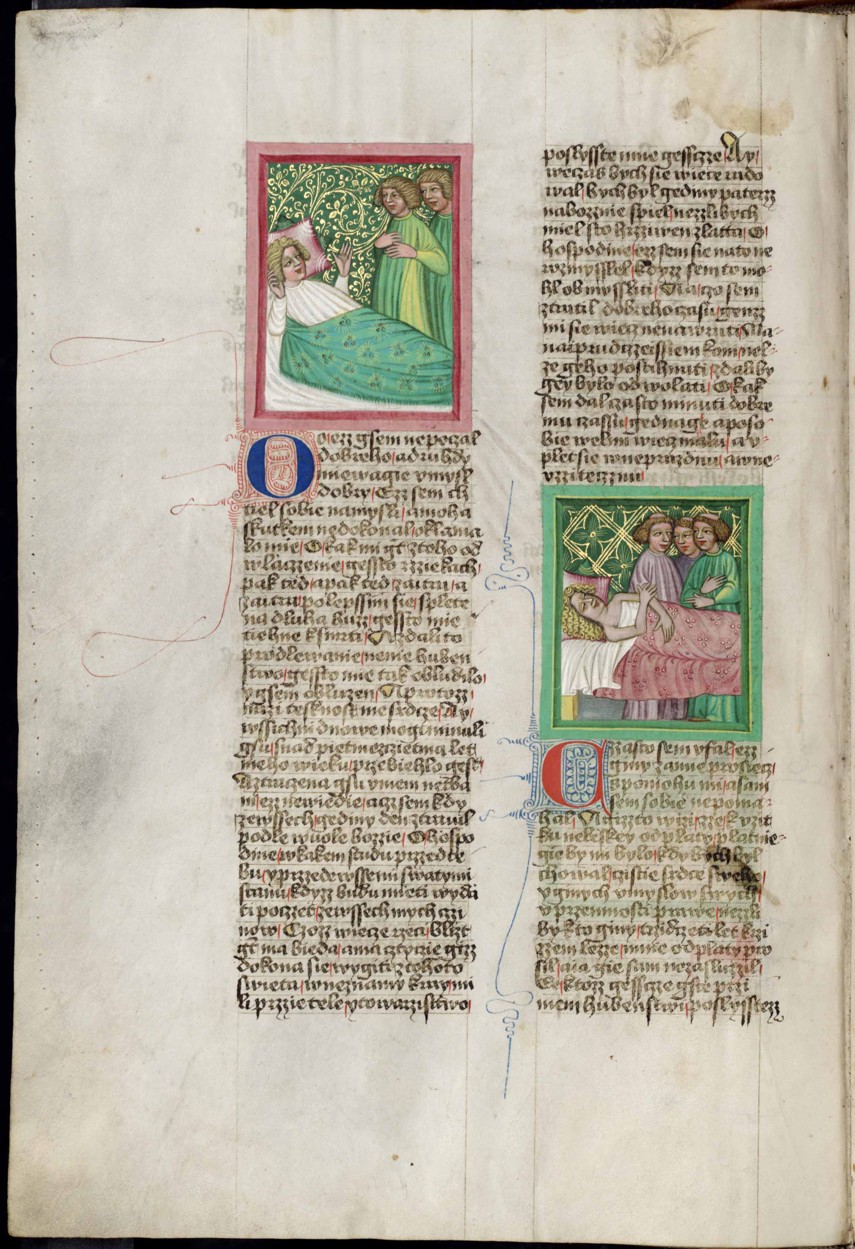 O ezz gsem nepoczal
dobreho, a druhdy
mie wagie vmysl
dobry, Ezz sem ch
tiel sobie namysli, a moha
skutkem nedokonal, oklama
lo mie, O kak mi gt ztoho od
wlaczzenie, gessto rzziekach,
pak ted, a pak ted, zaitra, a
zaitra, polepssim sie, splete
na dluha
tiehne k smrti, Azdali to
prodlewanie, nenie huben
stwo, gessto mie tak obludilo,
ygsem obluzen, A protozz
mrzi tesknost me srdcze, Ay,
wssichni dnowe mogi minuli
gsu, snad pietmezczietma let
meho wieku, przebiehlo gest,
A ztraczena gsu v mem netba
ni, ezz newiedie, acz sem kdy
ze wssech, gediny den ztrawil
podle wuole bozzie, O hospo
dine, w kakem studu przzed te
bu, y przzede wssemi swatymi
stanu, kdyzz budu mieti wyda
ti poczet, ze wssech mych czi
now, Czozz wiecze rzeci, blizt
gt ma bieda, a ma ztycie gizz
dokona sie, wygiti z tohoto
swieta, w neznamy kray, mi
li przzietele, y towarzistwo,
poslysste mne gesscze, Ay,
wczas bych sie wiecze rado
wal, bych byl gediny paterzz
nabozznie spiel, nezzli bych
miel sto hrziwen zlatta, O
hospodine, ezz sem sie na to ne
rozmysslel, kdyzz sem to mo
hl obmysliti, Na czo sem
ztratil dobreho czasu, genzz
mi sie wiecz nenawrati, Na
naprudczeissiem koni, nel
ze geho postihnuti, zdali by
gey bylo odwolati, O kak
sem dal czasto minuti dobre
mu czassu, gednage a poso
bie welmi wiecz malu, a v
pletl sie w neprazdnu, a w ne
vzzitecznu,
Czasto sem vfal, ezz
giny za mie prosiecz,
spomohu mi, a sam
sem sobie nepoma
hal, Nizzto wizi, zze k vzit
ku neleskey odplaty, platnie
gie by mi bylo, kdy bych byl
chowal czistie srdce sweho,
v gmych vmyslow swych,
v przemnosti prawe, nezzli
by kto giny, trzidczeti let krzi
zzem lezze, mnie odplaty pro
sil, a ia gie sam nezasluzzil,
We, ktozz gesscze gste przi
mem hubenstwi, poslyssteezz